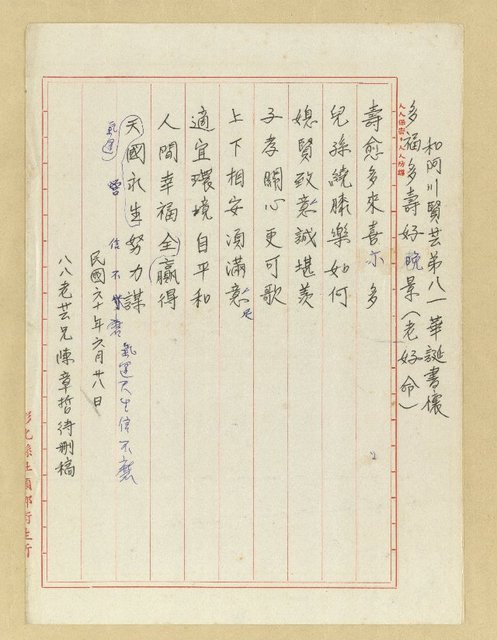 人人保密 人人防諜
和阿川賢芸弟八一華誕書懷
多福多壽好晚景(老好命)
壽愈多來喜亦多
兒孫繞膝樂如何
媳賢致意誠堪羨
子孝關心更可歌
上下相安須滿意足
適宜環境自平和
人間幸福全贏得
天國永生努力謀
氣運 信不
氣運天生信不
民國六十年六月廿八日
八八老芸兄陳章哲待刪稿